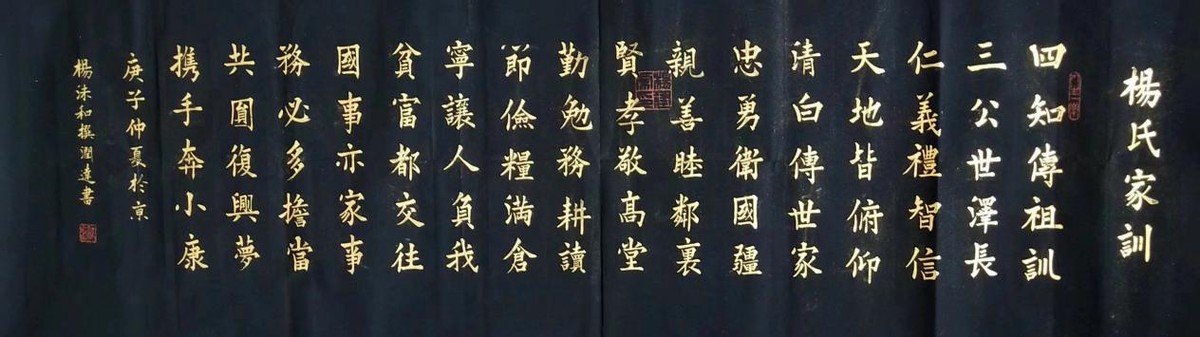 楊氏家訓
四知傳祖訓
三公世澤長
仁義禮智信
天地皆俯仰
清白傳世家
忠勇衛國疆
親善睦鄰裏
賢孝敬高堂
勤勉務耕讀
節儉糧滿倉
寧讓人負我
貧富都交往
國事亦家事
務必多擔當
共圓復興夢
携手奔小康
庚子仲夏於京
楊洙和撰潤達書